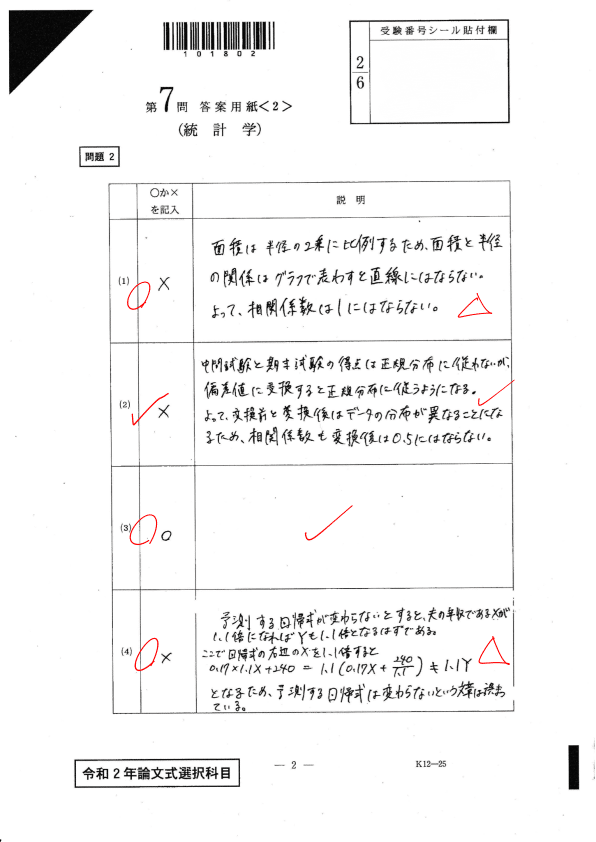 101802
受験番号シール貼付欄
2
6
第7問 答案用紙<2>
(統 計 学)
問題 2
○か×
を記入
説 明
(1)
×
面積は半径の2乗に比例するため、面積と半径
の関係はグラフで表わすと直線にはならない。
よって、相関係数は1にはならない。
(2)
×
中間試験と期末試験の得点は正規分布に従わないが、
偏差値に変換すると正規分布に従うようになる。
よって、変換前と変換後はデータの分布が異なることにな
るため、相関係数も変換後は0.5にはならない。
(3)
○
(4)
×
予測する回帰式が変わらないとすると、夫の年収であるXが
1.1倍になればYも1.1倍となるはずである。
ここで回帰式の右辺のXを1.1倍すると
0.17×1.1X+240 = 1.1(0.17X + 240/1.1) ≠ 1.1Y
となるため、予測する回帰式は変わらないという文章は誤っ
ている。
令和2年論文式選択科目
— 2 —
K12—25